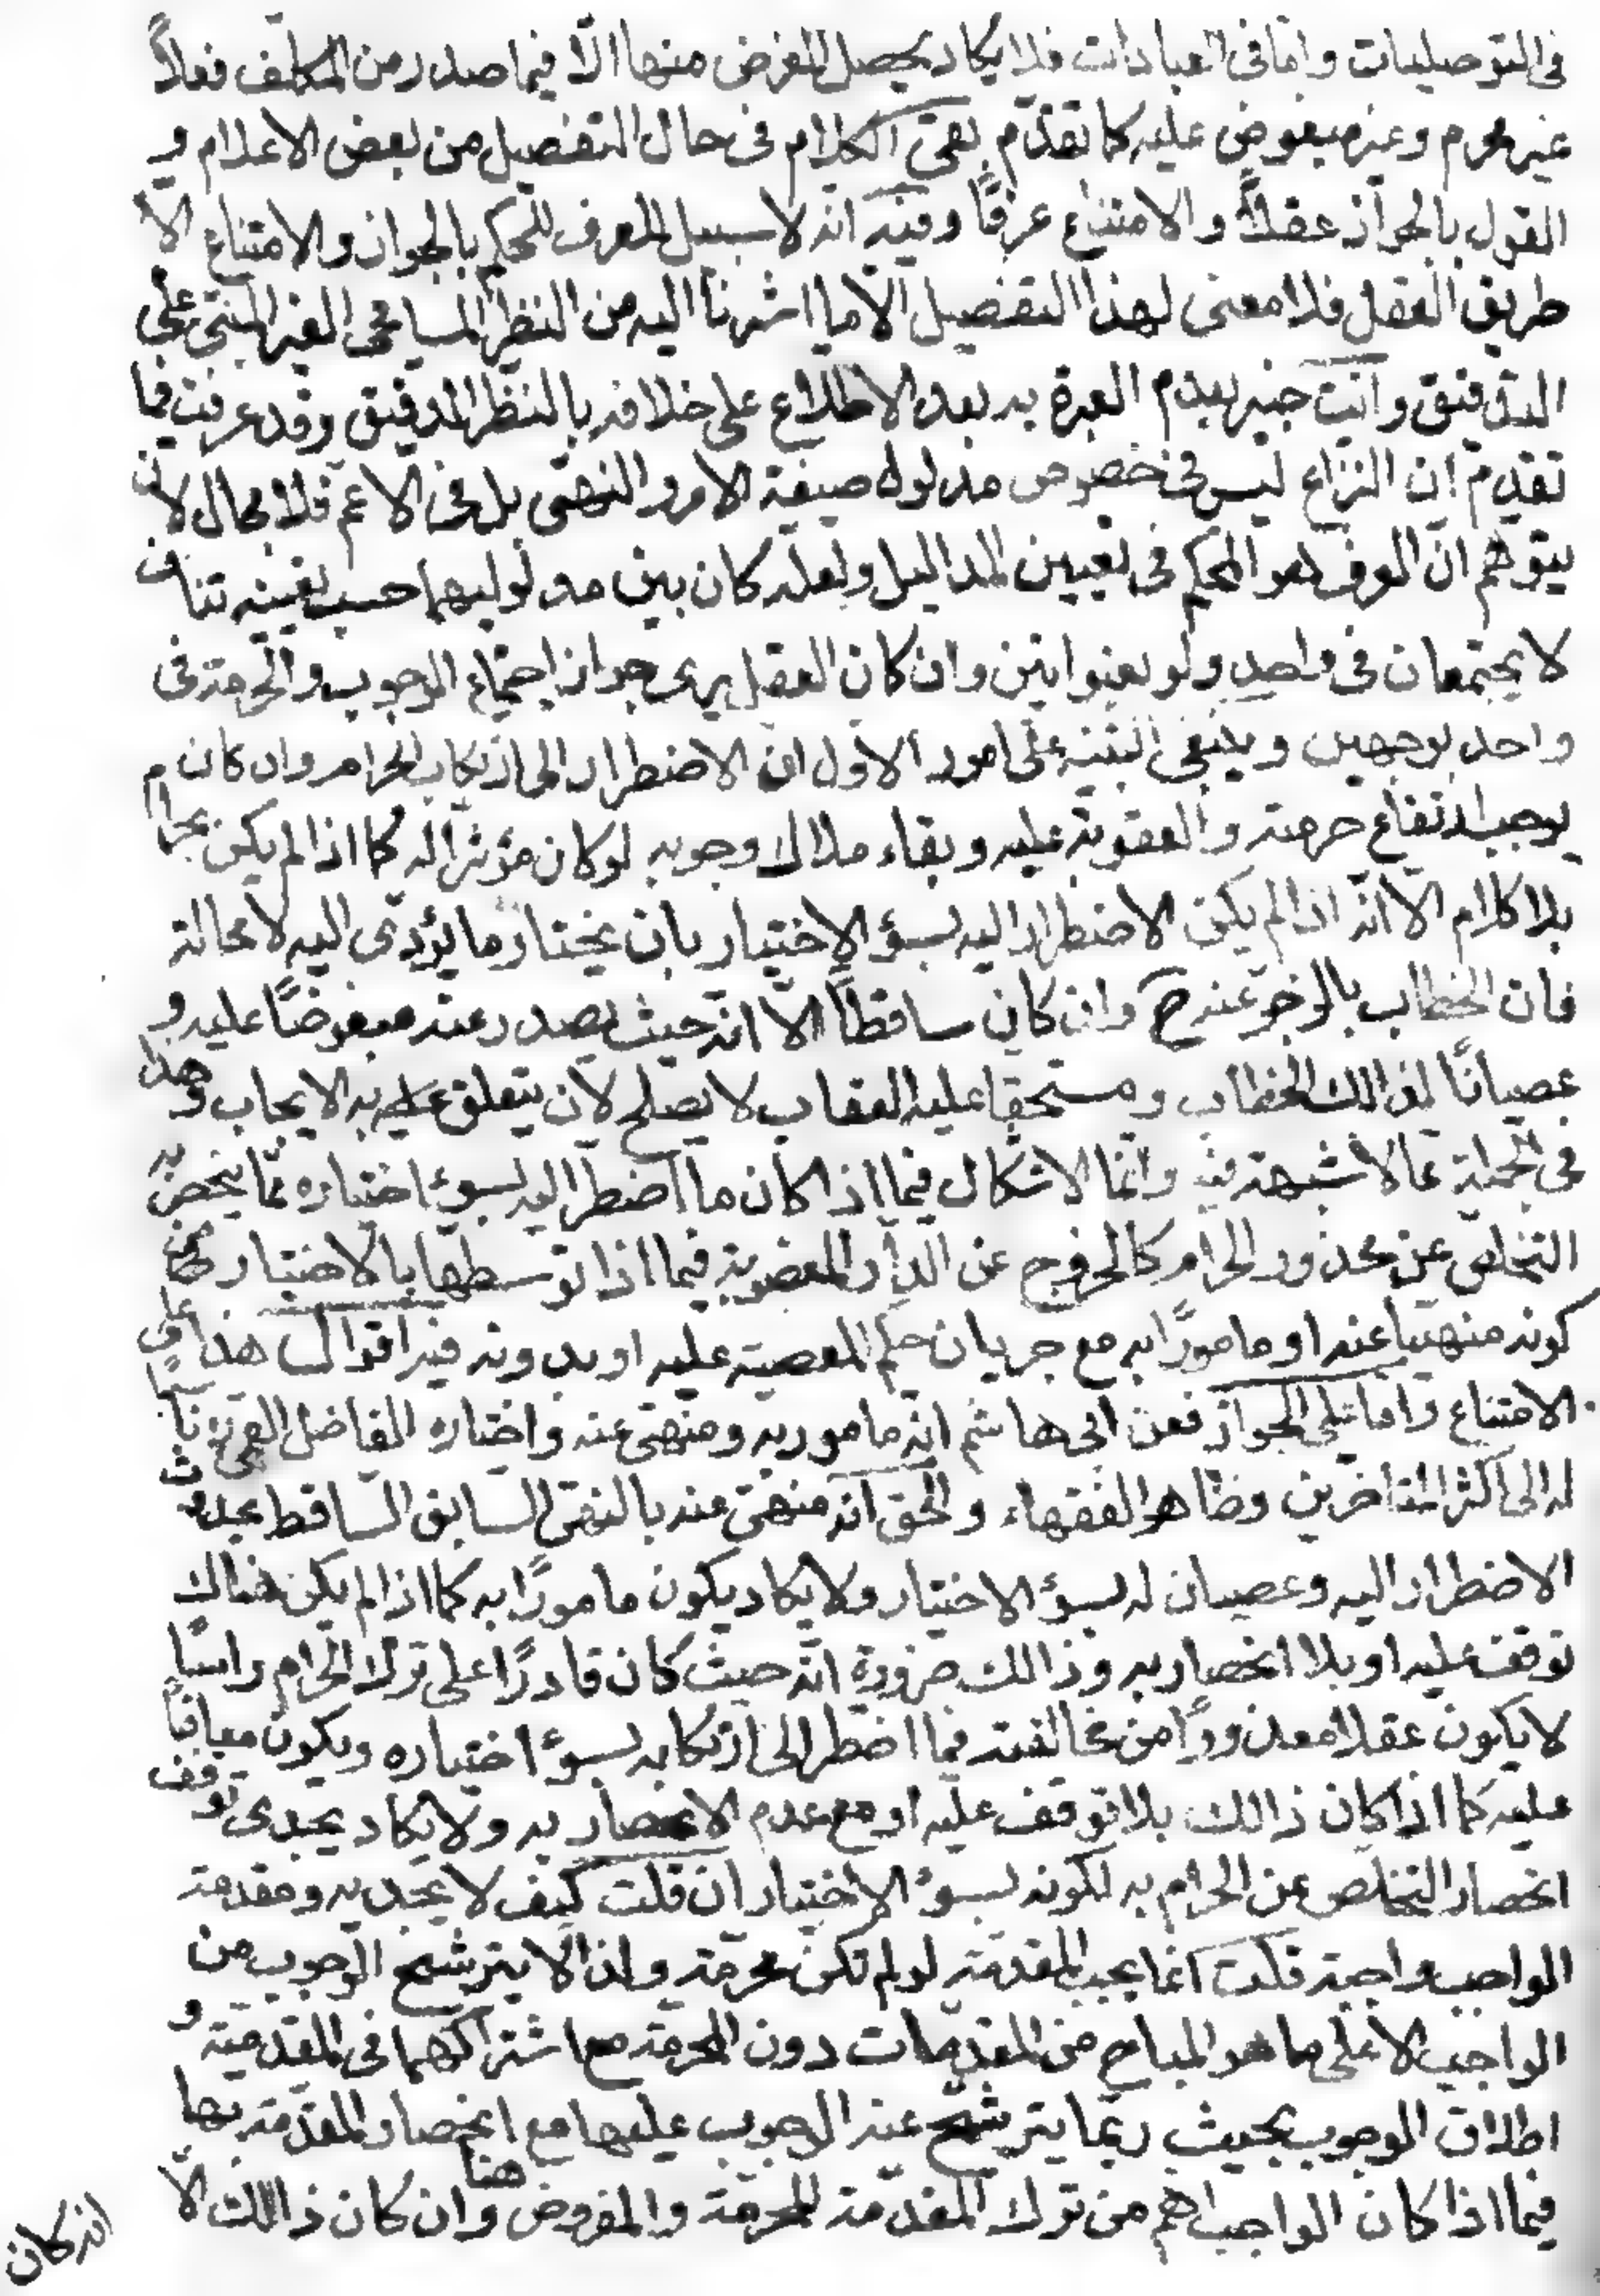 فى التوصليات واما فى العبادات فلا يكاد يحصل الغرض منها الّا فيما صدر من المكلّف فعلاً
غير محرم وغير مبغوض عليه كما تقدّم بقى الكلام فى حال التفصيل من بعض الاعلام و
القول بالجواز عقلاً والامتناع عرفًا وفيه انه لا سبيل للعرف للحكم بالجواز والامتناع الا
طريق العقل فلا معنى لهذا التفصيل الا ما اشرنا اليه من النظر المسامحى الغير المبتنى على
التدقيق وانت خبير بعدم العبرة به بعد الاطلاع على خلافه بالنظر الدقيق وقد عرفت فيما
تقدم ان النزاع ليس فى خصوص مدلول صيغة الامر والنهى بل فى الاعم فلا مجال لان
يتوهم ان العرف هو المحكم فى تعيين المداليل ولعله كان بين مدلوليهما حسب تعيينه تناف
لا يجتمعان فى واحد ولو بعنوانين وان كان العقل يرى جواز اجتماع الوجوب والحرمة فى
واحد بوجهين وينبغى التنبيه على امور الاول ان الاضطرار الى ارتكاب الحرام وان كان
يوجب ارتفاع حرمته والعقوبة عليه وبقاء ملاك وجوبه لو كان مؤثرا له كما اذا لم يكن بحرام
بلا كلام الا انّه اذا لم يكن الاضطرار اليه بسؤ الاختيار بان يختار ما يؤدى اليه لا محالة
فان الخطاب بالزجر عنه ح وان كان ساقطًا الّا انّه حيث يصدر عنه مبغوضًا عليه و
عصيانًا لذالك الخطاب ومستحقا عليه العقاب لا يصلح لان يتعلق عليه به الايجاب وهذا
فى الجملة مما لا شبهة فيه وانما الاشكال فيما اذا كان ما اضطر اليه بسوء اختياره مما ينحصر به
التخلص عن محذور الحرام كالخروج عن الدار المغصوبة فيما اذا توسطها بالاختيار فى
كونه منهيّا عنه او مامورًا به مع جريان حكم المعصية عليه او بدونه فيه اقوال هذا على
الامتناع واما على الجواز فعن ابى هاشم انّه مامور به ومنهى عنه واختاره الفاضل القمى ناسبًا
له الى اكثر المتاخرين وظاهر الفقهاء والحق انّه منهى عنه بالنهى السابق الساقط بحدوث
الاضطرار اليه وعصيان له بسؤ الاختيار ولا يكاد يكون مامورًا به كما اذا لم يكن هناك
توقف عليه او بلا انحصار به وذالك ضرورة انّه حيث كان قادرًا على ترك الحرام راسًا
لا يكون عقلا معذورًا من مخالفته فيما اضطر الى ارتكابه بسؤ اختياره ويكون معاقبًا
عليه كما اذا كان ذالك بلا توقف عليه او مع عدم الانحصار به ولا يكاد يجدى توقف
انحصار التخلص عن الحرام به لكونه بسؤ الاختيار ان قلت كيف لا يجديه ومقدمة
الواجب واجبة قلت انما يجب المقدمة لو لم تكن محرّمة ولذا لا يترشح الوجوب من
الواجب الا على ما هو المباح من المقدمات دون المحرمة مع اشتراكهما فى المقدمية و
اطلاق الوجوب بحيث ربّما يترشح عنه الوجوب عليها مع انحصار المقدمة بها
فيما اذا كان الواجب اهم من ترك المقدمة المحرّمة والمفروض هنا وان كان ذالك الّا
انه كان